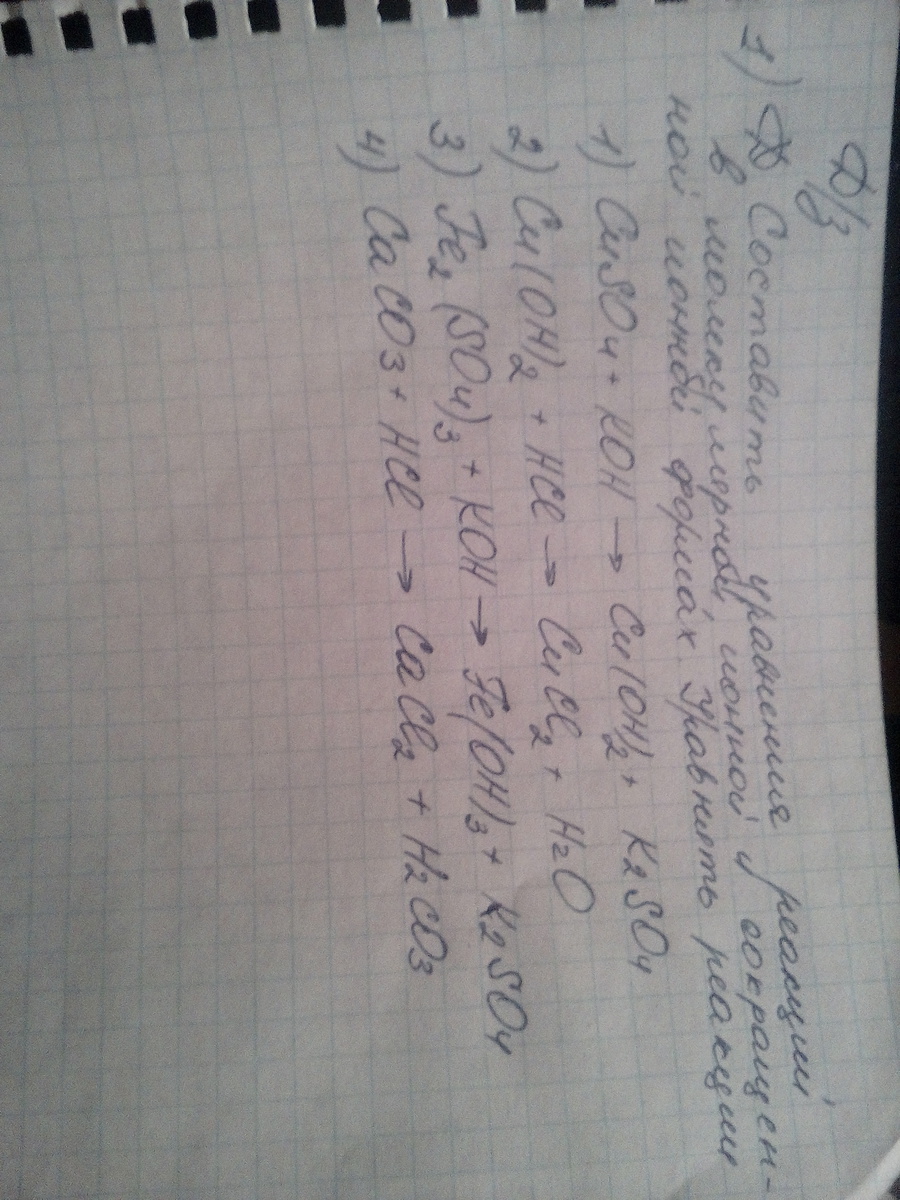 Д/з
1) Составить уравнения реакций
в молекулярной, ионной и сокращен-
ной ионной формах. Уравнять реакции
1) CuSO4 + KOH → Cu(OH)2 + K2SO4
2) Cu(OH)2 + HCl → CuCl2 + H2O
3) Fe2(SO4)3 + KOH → Fe(OH)3 + K2SO4
4) CaCO3 + HCl → CaCl2 + H2CO3